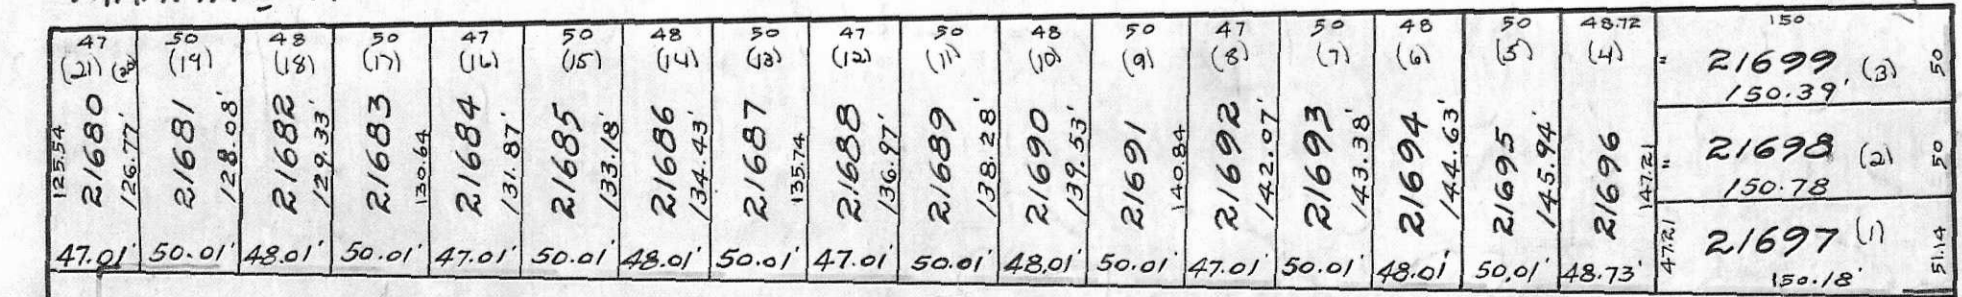 47
(21) (20)
125.54
21680
126.77'
47.01'
50
(19)
21681
128.08'
50.01'
48
(18)
21682
129.33'
48.01'
50
(17)
21683
130.64
50.01'
47
(16)
21684
131.87'
47.01'
50
(15)
21685
133.18'
50.01'
48
(14)
21686
134.43'
48.01'
50
(13)
21687
135.74
50.01'
47
(12)
21688
136.97'
47.01
50
(11)
21689
138.28'
50.01'
48
(10)
21690
139.53'
48.01'
50
(9)
21691
140.84
50.01'
47
(8)
21692
142.07'
47.01'
50
(7)
21693
143.38'
50.01'
48
(6)
21694
144.63'
48.01'
50
(5)
21695
145.94'
50.01'
48.72
(4)
21696
147.21
48.73'
150
21699 (3) 50
150.39'
21698 (2) 50
150.78
47.21
21697 (1) 51.14
150.18'